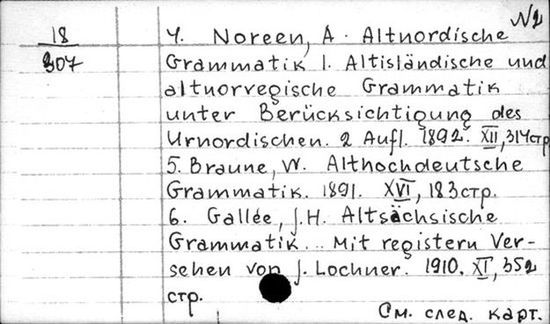 N2
18
307
4. Noreen, A. Altnordische
Grammatik 1. Altisländische und
altnorvegische Grammatik
unter Berücksichtigung des
Urnordischen. 2 Aufl. 1892. XII, 314стр
5. Braune, W. Althochdeutsche
Grammatik. 1891. XVI, 183стр.
6. Gallée, J.H. Altsächsische
Grammatik. Mit registern Ver-
sehen von J. Lochner. 1910. XI, 352
стр.
См. след. карт.